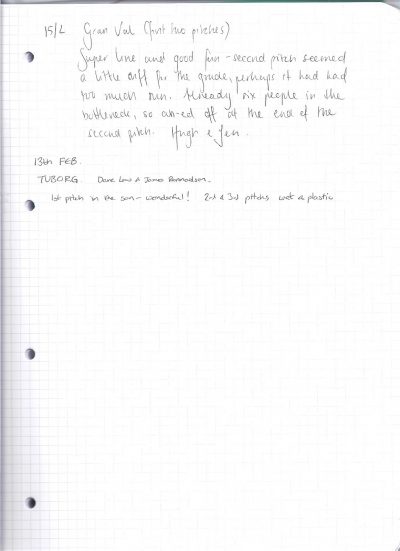 15/2 Gran Val (first two pitches)
Super line and good fun - second pitch seemed
a little stiff for the grade, perhaps it had had
too much sun. Already six people in the
bottleneck, so ab-ed off at the end of the
second pitch. Hugh & Jen.
13th FEB.
TUBORG. Dave Law &
1st pitch in the sun - wonderful! 2nd & 3rd pitches wet & plastic